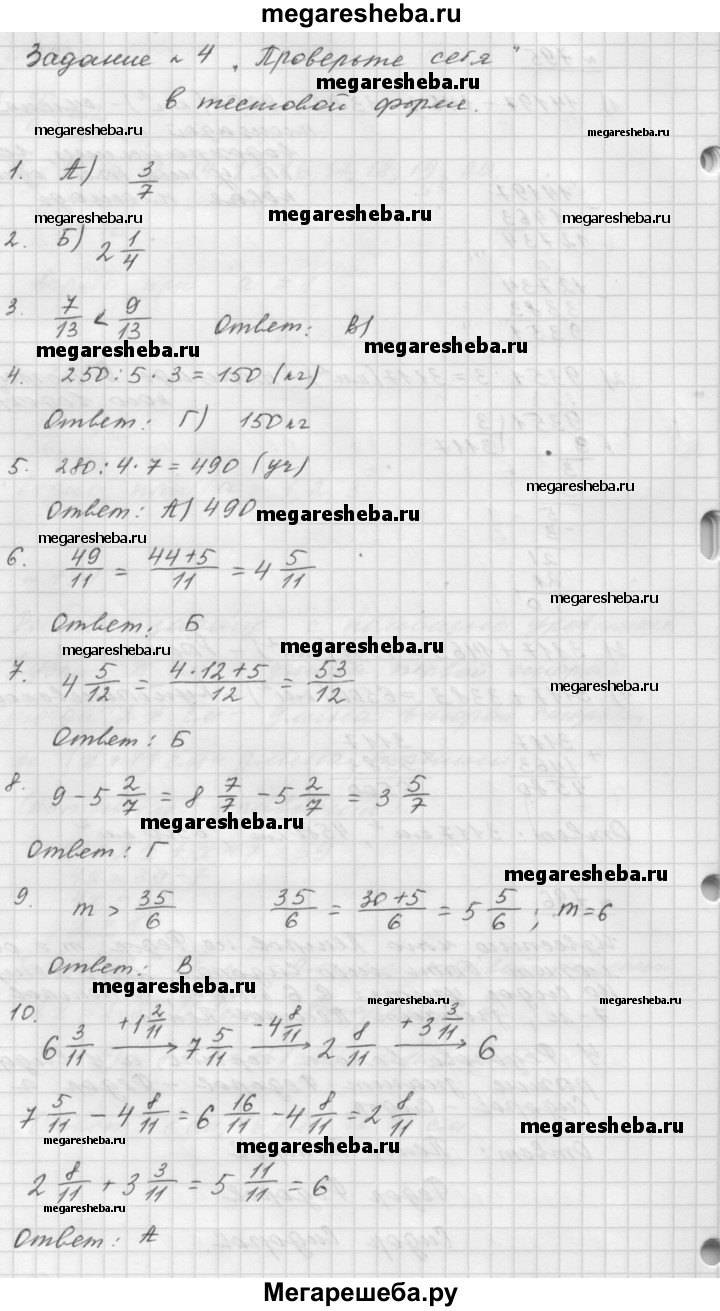 megaresheba.ru
Задание № 4 „Проверьте себя"
megaresheba.ru
в тестовой форме.
megaresheba.ru
megaresheba.ru
1. А) 3/7
megaresheba.ru megaresheba.ru megaresheba.ru
2. Б) 2 1/4
3. 7/13 < 9/13 Ответ: В)
megaresheba.ru megaresheba.ru
4. 250 : 5 · 3 = 150 (кг)
Ответ: Г) 150 кг
5. 280 : 4 · 7 = 490 (уч)
megaresheba.ru
Ответ: А) 490 megaresheba.ru
megaresheba.ru
6. 49/11 = 44+5/11 = 4 5/11
megaresheba.ru
Ответ: Б
megaresheba.ru megaresheba.ru
7. 4 5/12 = 4·12+5/12 = 53/12
megaresheba.ru
Ответ: Б
8. 9 - 5 2/7 = 8 7/7 - 5 2/7 = 3 5/7
megaresheba.ru
Ответ: Г
megaresheba.ru
9. m > 35/6 35/6 = 30+5/6 = 5 5/6 ; m = 6
Ответ: В
megaresheba.ru
megaresheba.ru megaresheba.ru
10. 6 3/11 +1 2/11 → 7 5/11 -4 8/11 → 2 8/11 +3 3/11 → 6
7 5/11 - 4 8/11 = 6 16/11 - 4 8/11 = 2 8/11
megaresheba.ru megaresheba.ru megaresheba.ru
2 8/11 + 3 3/11 = 5 11/11 = 6
megaresheba.ru
Ответ: А
Мегарешеба.ру